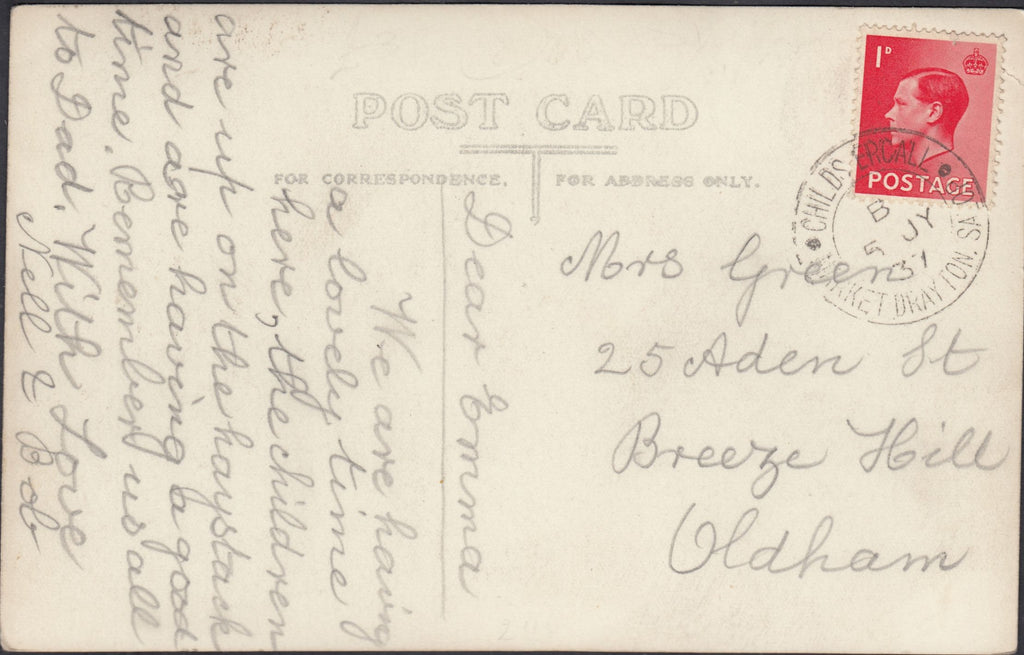 POST CARD
FOR CORRESPONDENCE.
FOR ADDRESS ONLY.
1D
POSTAGE
CHILDS ERCALL
MARKET DRAYTON. SALOP
B
5 JY
37
Mrs Green
25 Aden St
Breeze Hill
Oldham
Dear Emma
We are having
a lovely time
here, the children
are up on the haystack
and are having a good
time. Remember us all
to Dad. With Love
Nell & Bob